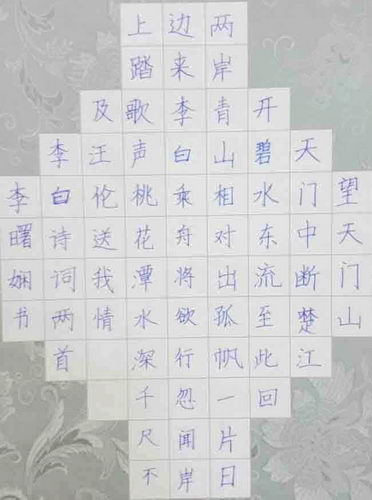 望天门山
天门中断楚江
开碧水东流至此回
两岸青山相对出孤帆一片日
边来李白乘舟将欲行忽闻岸
上踏歌声桃花潭水深千尺不
及汪伦送我情
李白诗词两首
李曙娴书